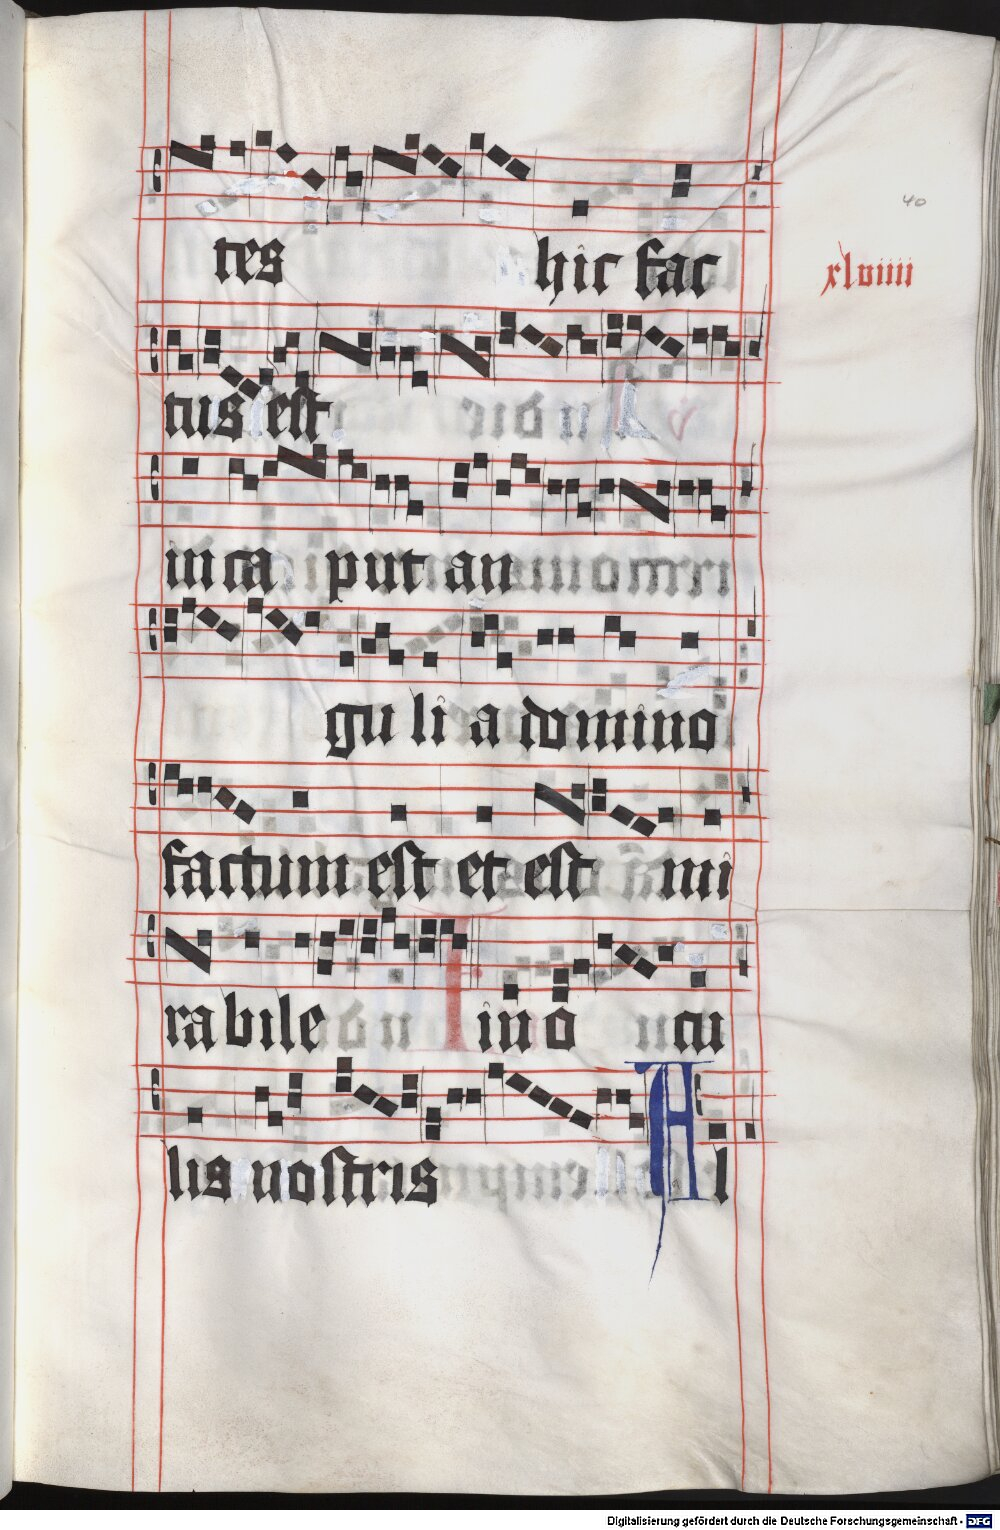 40
tes hic fac
xlviiii
tus est
in ca put an
gu li a domino
factum est et est mi
rabile in o cu
lis nostris Al
Digitalisierung gefördert durch die Deutsche Forschungsgemeinschaft - DFG